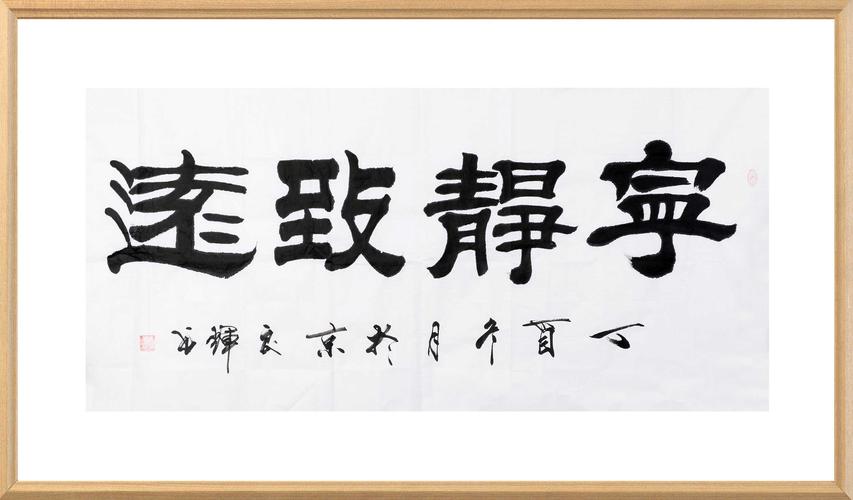 寧靜致遠
丁酉冬月於京良輝书